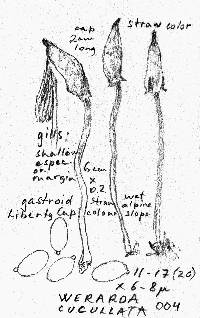 cap
2cm
long
straw color
gills:
shallow
espec.
on
margin
6cm
x
0.2
straw
colour
wet
alpine
slope
gastroid
Liberty Cap
11-17(20)
x 6-8µ
WERAROA
CUCULLATA 004